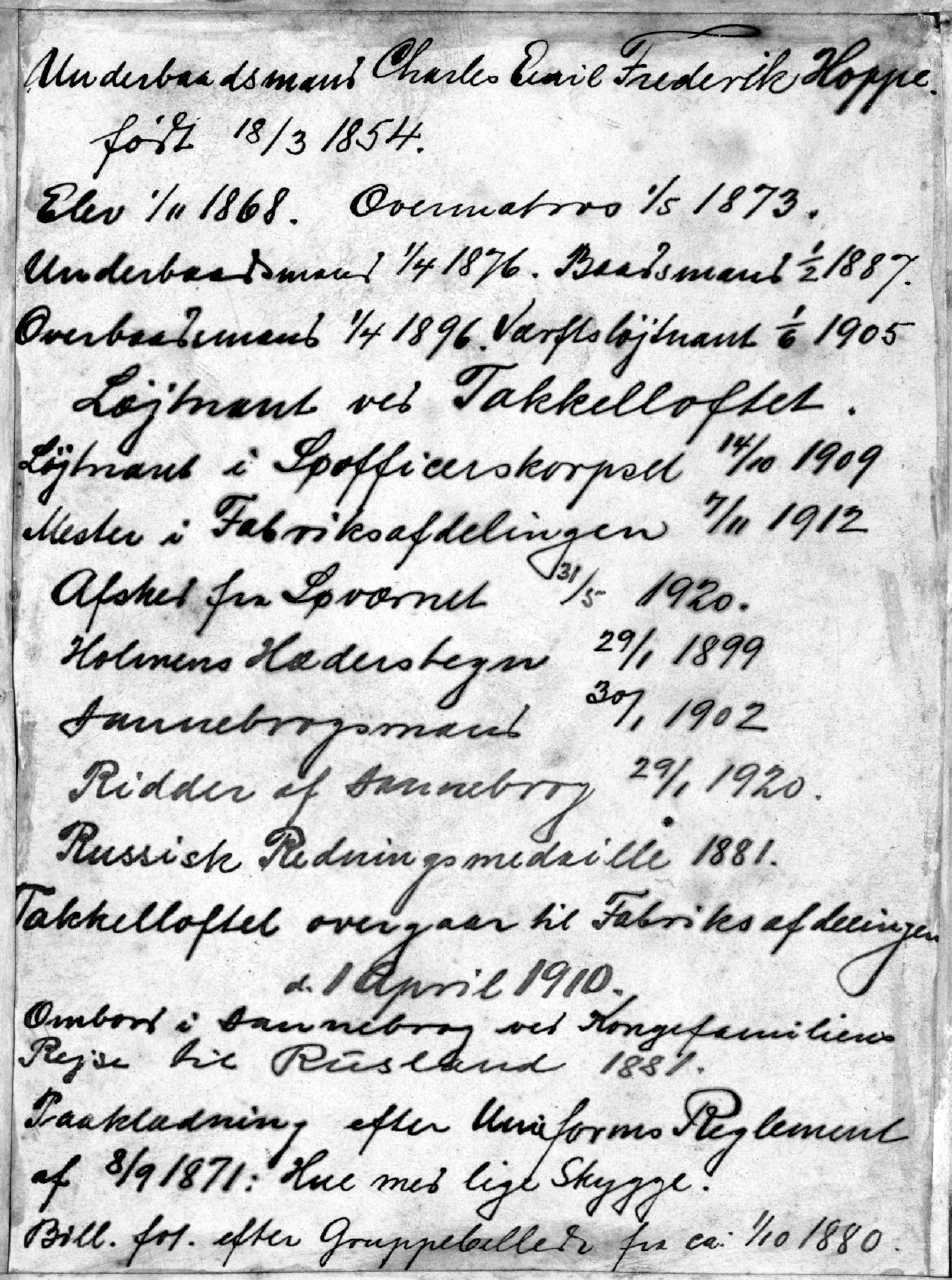 Underbaadsmand Charles Emil Frederik Hoppe.
født 18/3 1854.
Elev 1/11 1868. Overmatros 1/5 1873.
Underbaadsmand 1/4 1876. Baadsmand 1/2 1887.
Overbaadsmand 1/4 1896. Værftsløjtnant 1/6 1905
Løjtnant ved Takkelloftet.
Løjtnant i Søofficerskorpset 14/10 1909
Mester i Fabriksafdelingen 7/11 1912
Afsked fra Søværnet 31/5 1920.
Holmens Hæderstegn 29/1 1899
Dannebrogsmand 30/1 1902
Ridder af Dannebrog 29/1 1920.
Russisk Redningsmedaille 1881.
Takkelloftet overgaar til Fabriksafdelingen
d. 1 April 1910.
Ombord i Dannebrog ved Kongefamiliens
Rejse til Rusland 1881.
Paaklædning efter Uniforms Reglement
af 8/9 1871: Hue med lige Skygge.
Bill. fot. efter Gruppebillede fra ca: 1/10 1880.